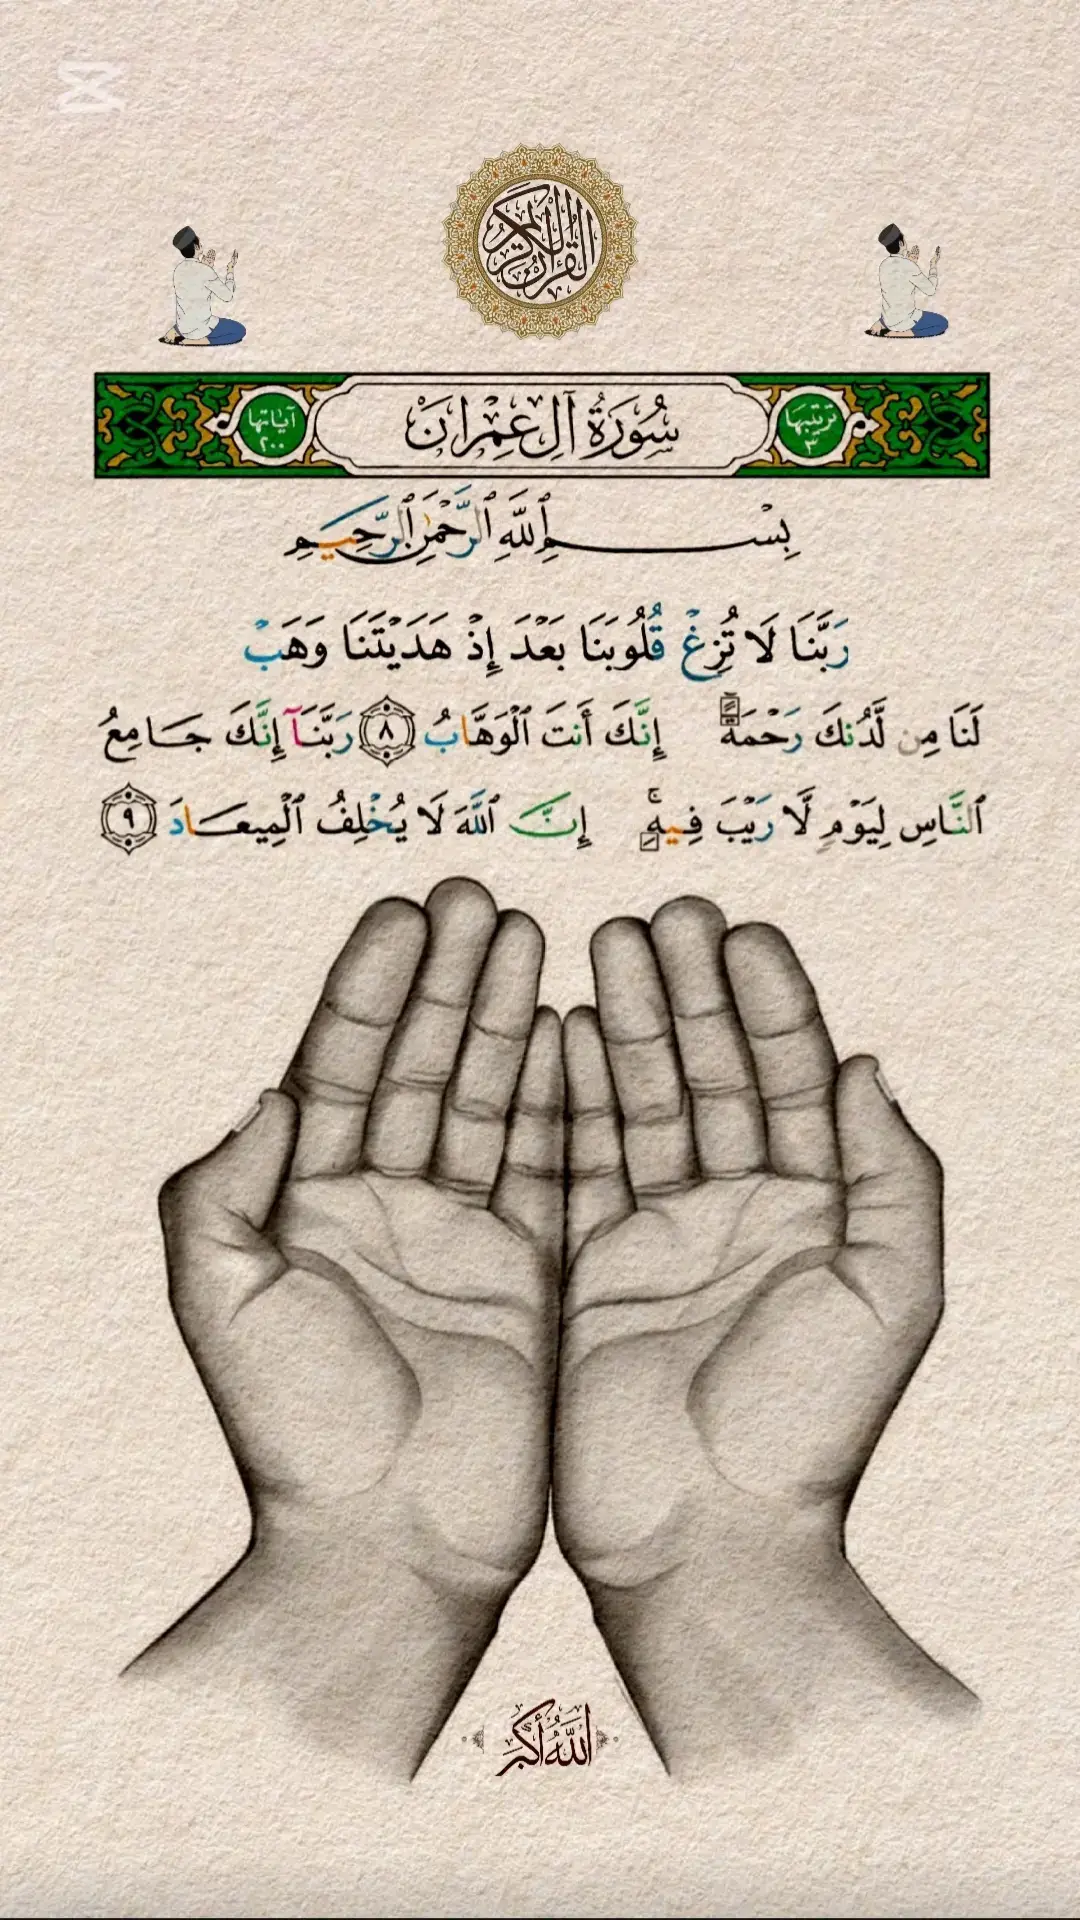 القرآن الكريم
سُورَةُ آلِ عِمْرَانَ
ترتيبها
٣
آياتها
٢٠٠
بِسْمِ ٱللَّهِ ٱلرَّحْمَٰنِ ٱلرَّحِيمِ
رَبَّنَا لَا تُزِغْ قُلُوبَنَا بَعْدَ إِذْ هَدَيْتَنَا وَهَبْ
لَنَا مِن لَّدُنكَ رَحْمَةً إِنَّكَ أَنتَ ٱلْوَهَّابُ ٨ رَبَّنَآ إِنَّكَ جَامِعُ
ٱلنَّاسِ لِيَوْمٍ لَّا رَيْبَ فِيهِ ۚ إِنَّ ٱللَّهَ لَا يُخْلِفُ ٱلْمِيعَادَ ٩
اللَّهُ أَكْبَرُ